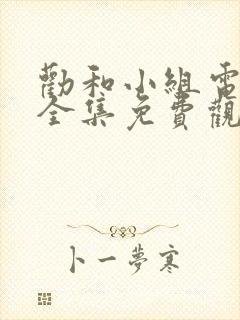 勸和小組電
全集免費觀
卜一夢寒